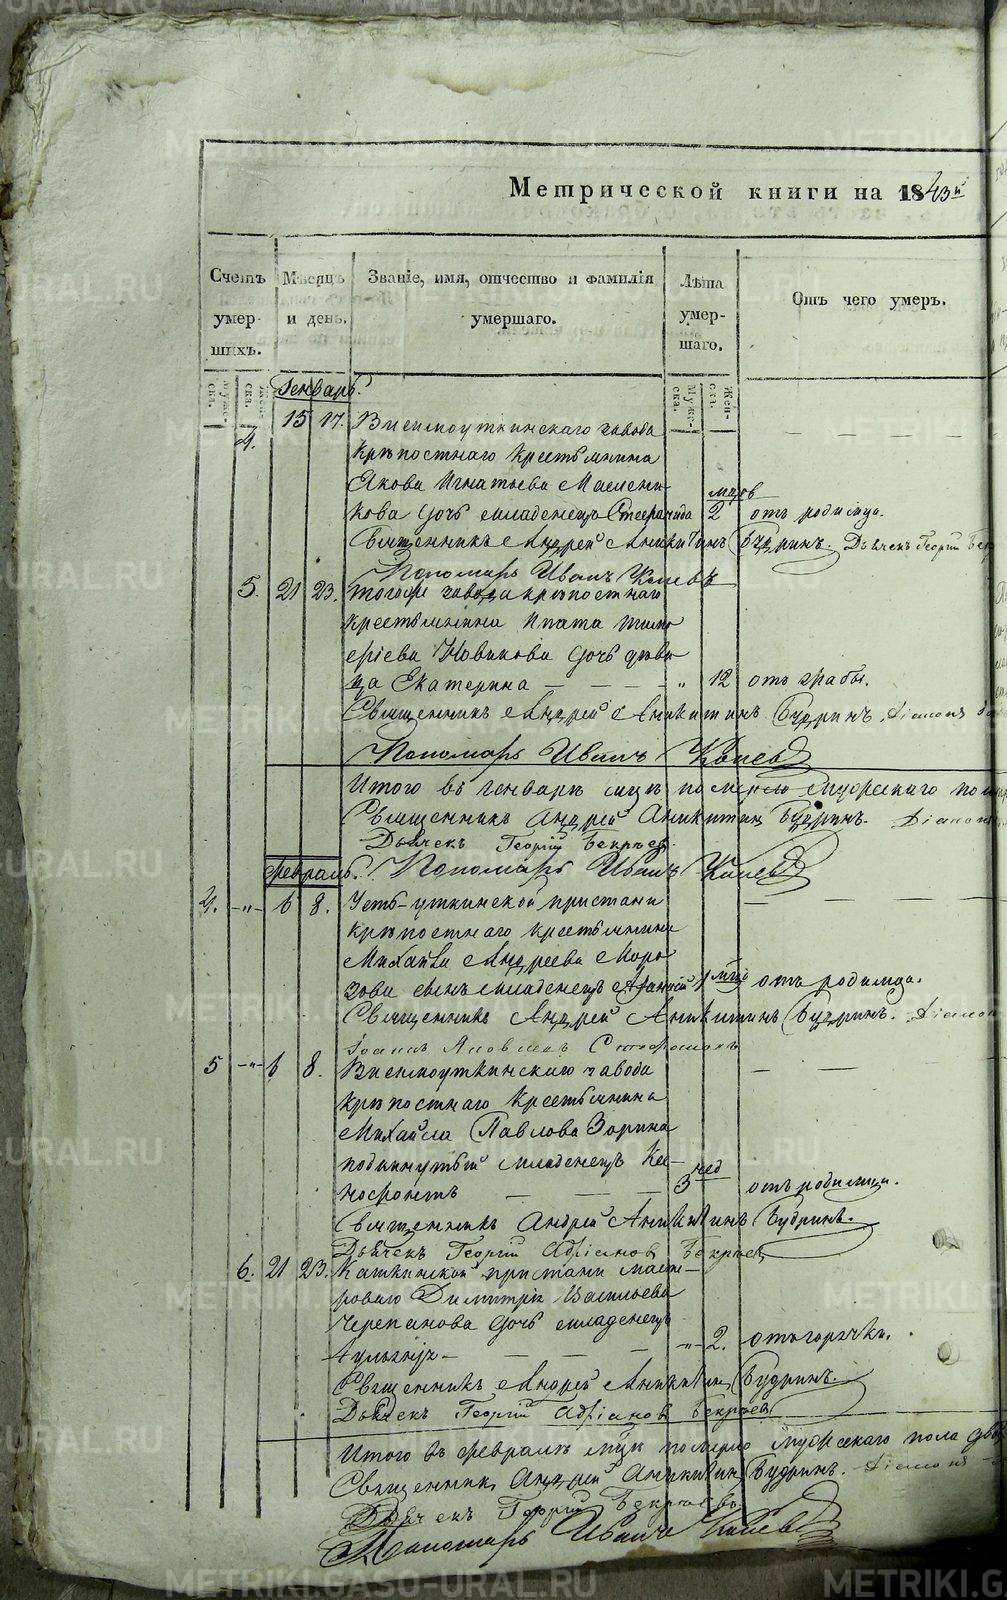 Метрической книги на 1843й
Счетъ умер- шихъ.
Мѣсяцъ и день.
Званіе, имя, отчество и фамилія умершаго.
Лѣта умер- шаго.
Отъ чего умеръ.
Муже- ска.
Жен- ска.
Муже- ска.
Жен- ска.
Генварь.
4. 15 17. Висимоуткинскаго завода
крѣпостнаго крестьянина
Якова Игнатьева
кова дочь младенецъ 2 мцов отъ родимца.
Священникъ Андрей Аникитинъ Будринъ. Дьячекъ Георгій
Пономарь Иванъ
5. 21 23. тогоже завода крѣпостнаго
крестьянина Ипата Тимо
фѣева Новикова дочь дѣви
ца Екатерина — — — " 12 отъ
Священникъ Андрей Аникитинъ Будринъ. Діаконъ
Пономарь Иванъ
Итого въ генварѣ мцѣ померло мужескаго пола
Священникъ Андрей Аникитинъ Будринъ. Діаконъ
Дьячекъ Георгій
Февраль. Пономарь Иванъ
4. -"- 6 8. Усть-уткинской пристани
крѣпостнаго крестьянина
Михайла Андреева Моро
зова сынъ младенецъ 1 мцъ отъ родимца.
Священникъ Андрей Аникитинъ Будринъ. Діаконъ
Іоаннъ Яковлевъ
5 -"- 6 8. Висимоуткинскаго завода
крѣпостнаго крестьянина
Михайла Павлова Зорина
подкинутый младенецъ Кс-
нофонтъ — — — 3 нед отъ родимца.
Священникъ Андрей Аникитинъ Будринъ.
Дьячекъ Георгій Адріановъ
6. 21 23. Кашкинской пристани масте-
роваго Димитрія Васильева
Черепанова дочь младенецъ
— — — -"- 2. отъ горячки.
Священникъ Андрей Аникитинъ Будринъ.
Дьячекъ Георгій Адріановъ
Итого въ февралѣ мцѣ померло мужескаго пола два
Священникъ Андрей Аникитинъ Будринъ. Діаконъ
Дьячекъ Георгій
Пономарь Иванъ
METRIKI.GASO-URAL.RU